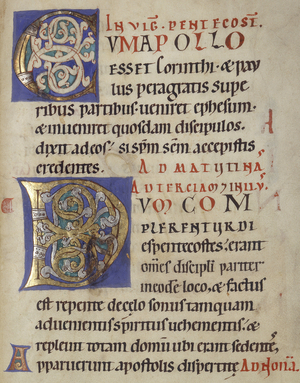 IN VIG. PENTECOST.
CUM APOLLO
ESSET Corinthi. & pau
lus peragratis supe
rioribus partibus. veniret ephesum.
& inveniret quosdam discipulos.
dixit ad eos. si spm sem accepistis
credentes. AD MATUTINAS
AD TERCIAM
DUM COM
PLERENTUR DI
es pentecostes. erant
omes discipli pariter
in eodem loco. & factus
est repente de celo sonus tamquam
advenientis spiritus vehementis. &
replevit totam domum ubi erant sedentes.
Apparuerunt apostolis dispertite AD NONA